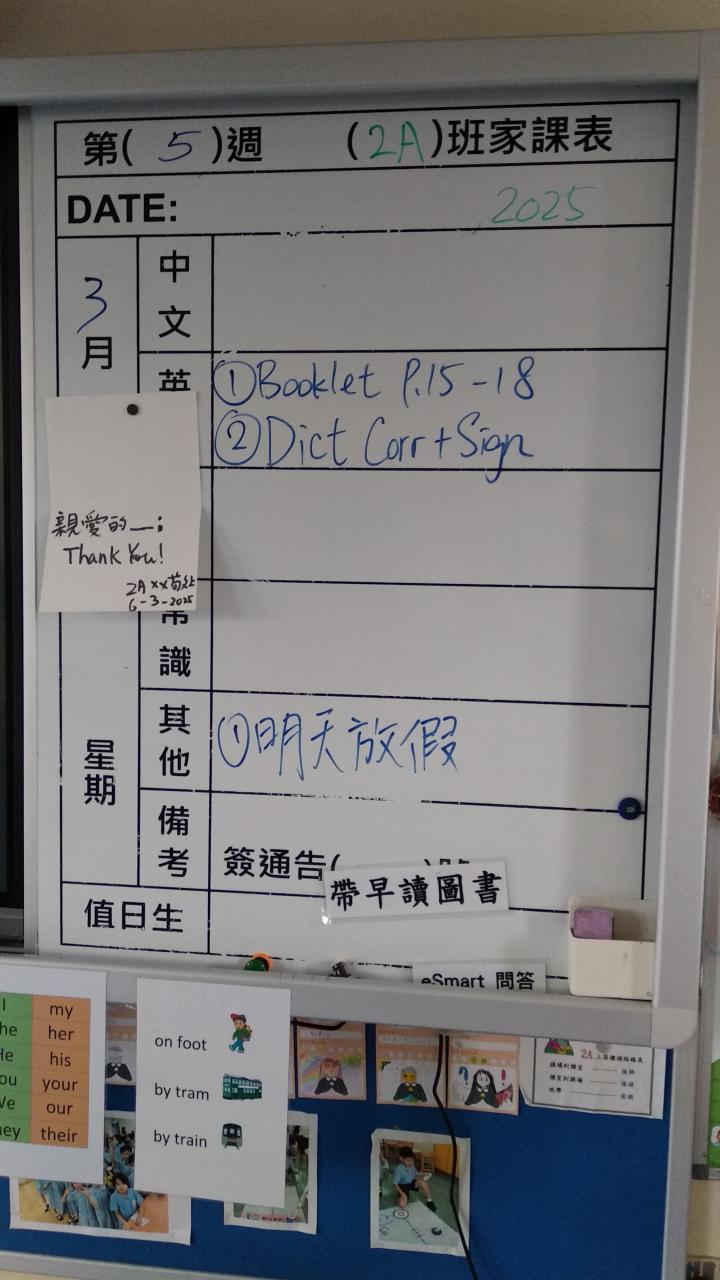 第( 5 )週 (2A)班家課表
DATE: 2025
3月
中文
英
①Booklet P.15-18
②Dict Corr+Sign
親愛的__:
Thank You!
2A xx
6-3-2025
常識
其他
①明天放假
星期
備考
簽通告( )
帶早讀圖書
值日生
eSmart 問答
I my
he her
He his
ou your
We our
hey their
on foot
by tram
by train
2A